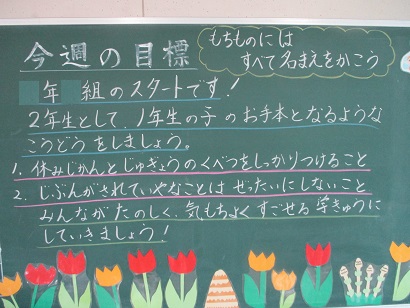 今週の目標
もちものには
すべて名まえをかこう
年 組のスタートです!
2年生として、1年生の子のお手本となるような
こうどうをしましょう。
1. 休みじかんとじゅぎょうのくべつをしっかりつけること
2. じぶんがされていやなことはぜったいにしないこと
みんながたのしく、気もちよくすごせる学きゅうに
していきましょう!